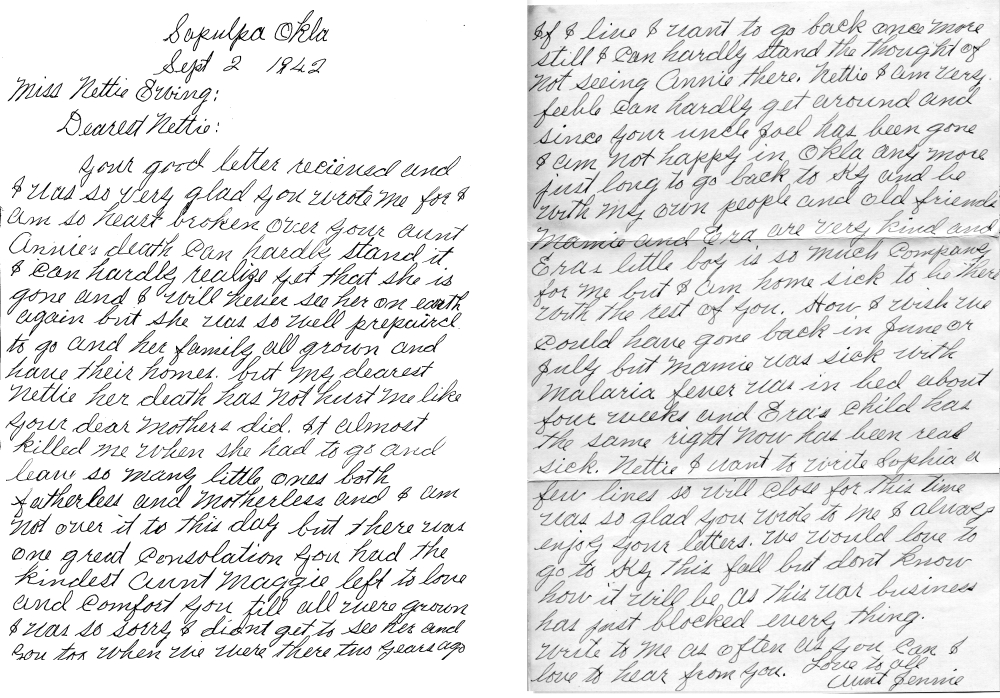 Sapulpa Okla
Sept 2 1942
Miss Nettie Erving:
Dearest Nettie:
your good letter recieved and
I was so very glad you wrote me for I
am so heart broken over your aunt
Annie's death can hardly stand it
I can hardly realize yet that she is
gone and I will never see her on earth
again but she was so well prepaired
to go and her family all grown and
have their homes. but my dearest
Nettie her death has not hurt me like
your dear Mothers did. It almost
killed me when she had to go and
leave so many little ones both
fatherless and Motherless and I am
not over it to this day but there was
one great consolation you had the
kindest aunt Maggie left to love
and comfort you till all were grown
I was so sorry I didnt get to see her and
you too when we were there two years ago
If I live I want to go back once more
still I can hardly stand the thought of
not seeing Annie there. Nettie I am very
feeble can hardly get around and
since your uncle Joel has been gone
I am not happy in Okla any more
just long to go back to Ky and be
with my own people and old friends
Mamie and Era are very kind and
Eras little boy is so much company
for me but I am home sick to be there
with the rest of you. How I wish we
could have gone back in June or
July but Mamie was sick with
malaria fever was in bed about
four weeks and Era's child has
the same right now has been real
sick. Nettie I want to write Sophia a
few lines so will close for this time
was so glad you wrote to me I always
enjoy your letters. We would love to
go to Ky this fall but dont know
how it will be as this war business
has just blocked every thing.
write to me as often as you can I
love to hear from you. Love to all
Aunt Jennie